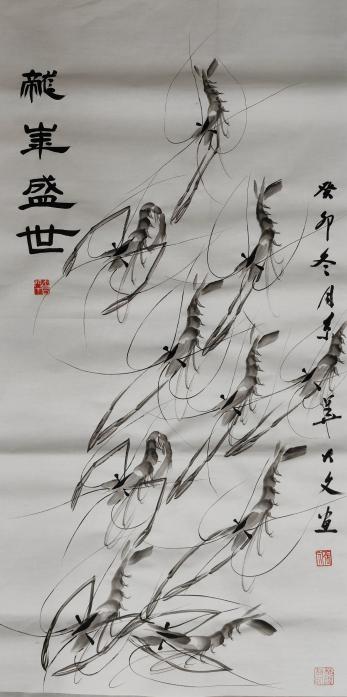 龍年盛世
癸卯冬月京華文画